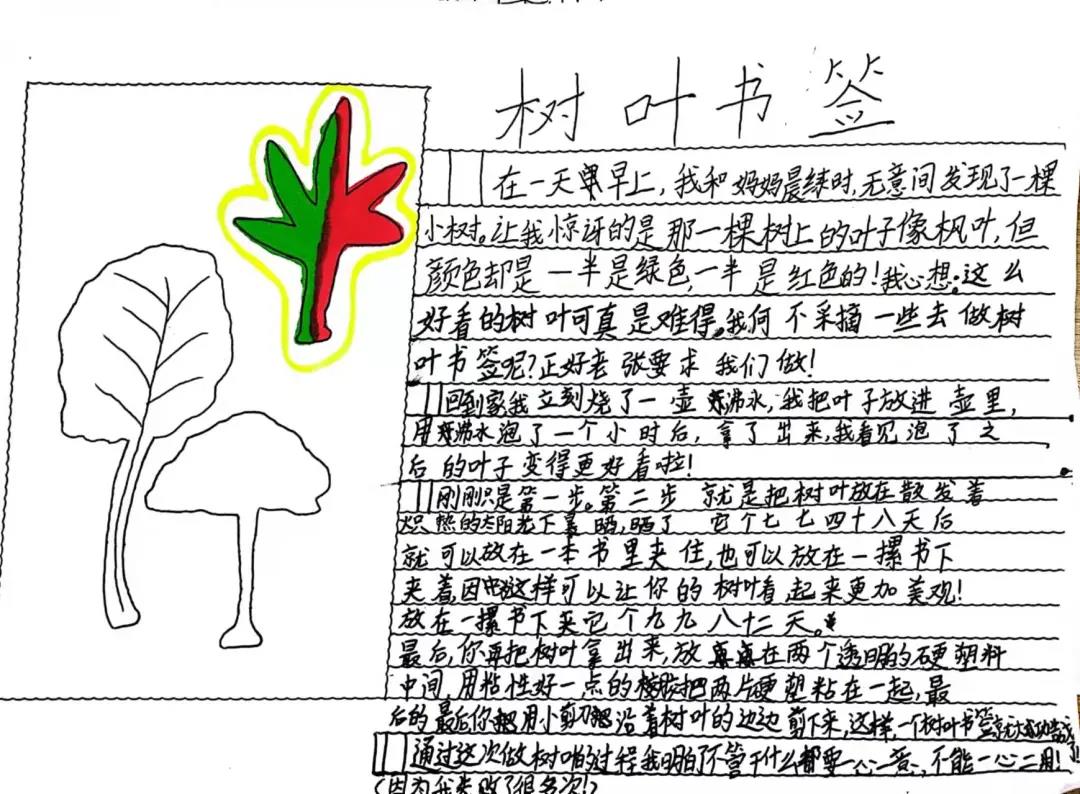 树叶书签
在一天早上,我和妈妈晨练时,无意间发现了一棵
小树。让我惊讶的是那一棵树上的叶子像枫叶,但
颜色却是一半是绿色,一半是红色的!我心想:这么
好看的树叶可真是难得。我何不采摘一些去做树
叶书签呢?正好老张要求我们做!
回到家我立刻烧了一壶沸水,我把叶子放进壶里,
用沸水泡了一个小时后,拿了出来,我看见泡了之
后的叶子变得更好看啦!
刚刚只是第一步。第二步就是把树叶放在散发着
炽热的太阳光下暴晒,晒了它个七七四十八天后
就可以放在一本书里夹住,也可以放在一摞书下
夹着,因为这样可以让你的树叶看起来更加美观!
放在一摞书下夹它个九九八十二天。
最后,你再把树叶拿出来,放在两个透明的硬塑料
中间,用粘性好一点的胶把两片硬塑粘在一起,最
后的最后你用小剪刀沿着树叶的边边剪下来,这样,一个树叶书签就大功告成
通过这次做树叶的过程我明白了不管干什么都要一心一意,不能一心二用!
(因为我失败了很多次!)